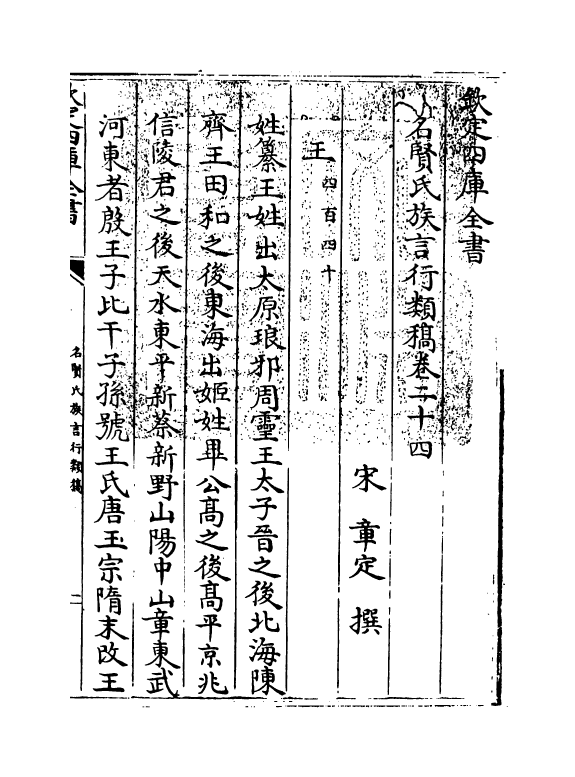 欽定四庫全書
名賢氏族言行類稿卷二十四
宋 章定 撰
王 四百四十
姓纂王姓出太原琅邪周靈王太子晉之後北海陳
齊王田和之後東海出姬姓畢公髙之後髙平京兆
信陵君之後天水東平新蔡新野山陽中山章東武
河東者殷王子比干子孫號王氏唐玉宗隋末改王
欽定四庫全書
名賢氏族言行類稿